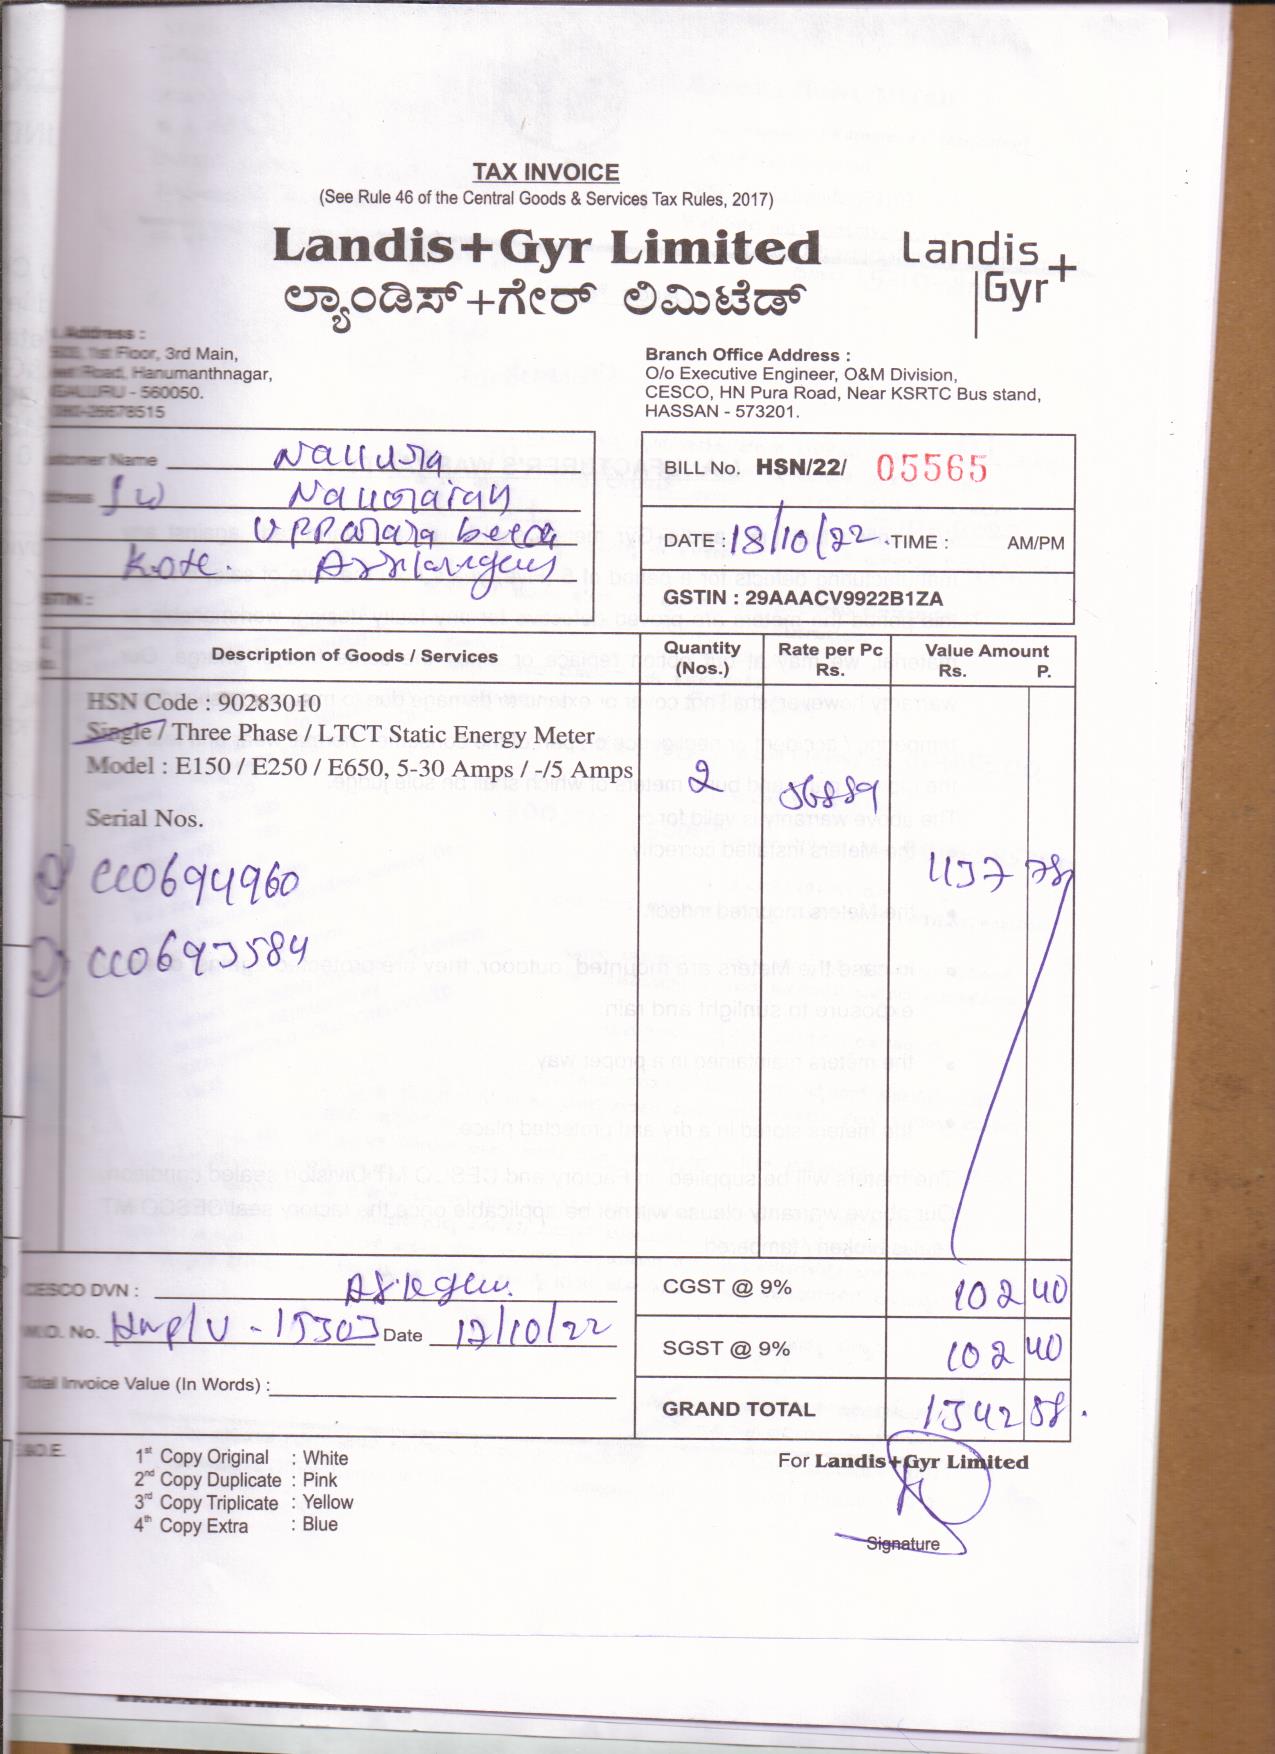 TAX INVOICE
(See Rule 46 of the Central Goods & Services Tax Rules, 2017)
Landis+Gyr Limited
Landis
Gyr+
ಲ್ಯಾಂಡಿಸ್+ಗೇರ್ ಲಿಮಿಟೆಡ್
Address :
1st Floor, 3rd Main,
Road, Hanumanthnagar,
- 560050.
080-26678515
Branch Office Address :
O/o Executive Engineer, O&M Division,
CESCO, HN Pura Road, Near KSRTC Bus stand,
HASSAN - 573201.
Customer Name
Address
Kote.
GSTIN :
BILL No. HSN/22/ 05565
DATE : 18/10/22. TIME : AM/PM
GSTIN : 29AAACV9922B1ZA
Description of Goods / Services
Quantity (Nos.)
Rate per Pc Rs.
Value Amount Rs. P.
HSN Code : 90283010
Single / Three Phase / LTCT Static Energy Meter
Model : E150 / E250 / E650, 5-30 Amps / -/5 Amps
2
568.89
1137 78
Serial Nos.
CC0694960
CC0693584
CESCO DVN :
W.O. No. Date 17/10/22
Total Invoice Value (In Words) :
CGST @ 9% 102 40
SGST @ 9% 102 40
GRAND TOTAL 1342 58.
E.&O.E.
1st Copy Original : White
2nd Copy Duplicate : Pink
3rd Copy Triplicate : Yellow
4th Copy Extra : Blue
For Landis+Gyr Limited
Signature